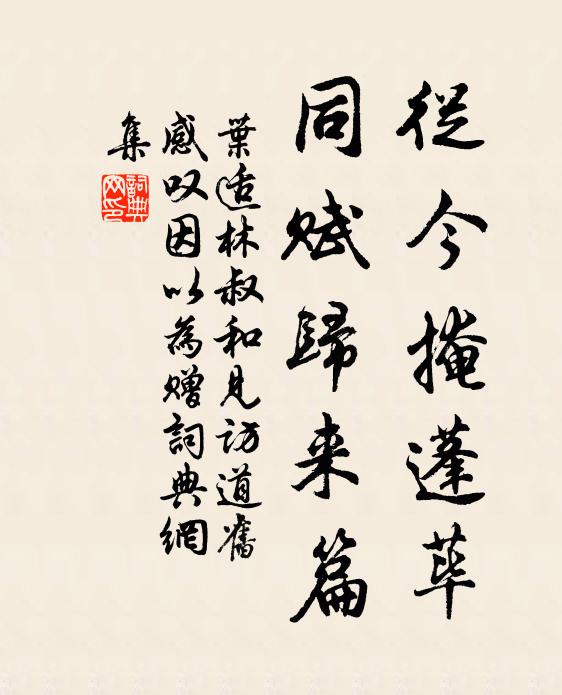 從今掩蓬蓽
同賦歸来篇
葉适林叔和見訪道舊
感叹因以為贈詞典網
集
詞典網印